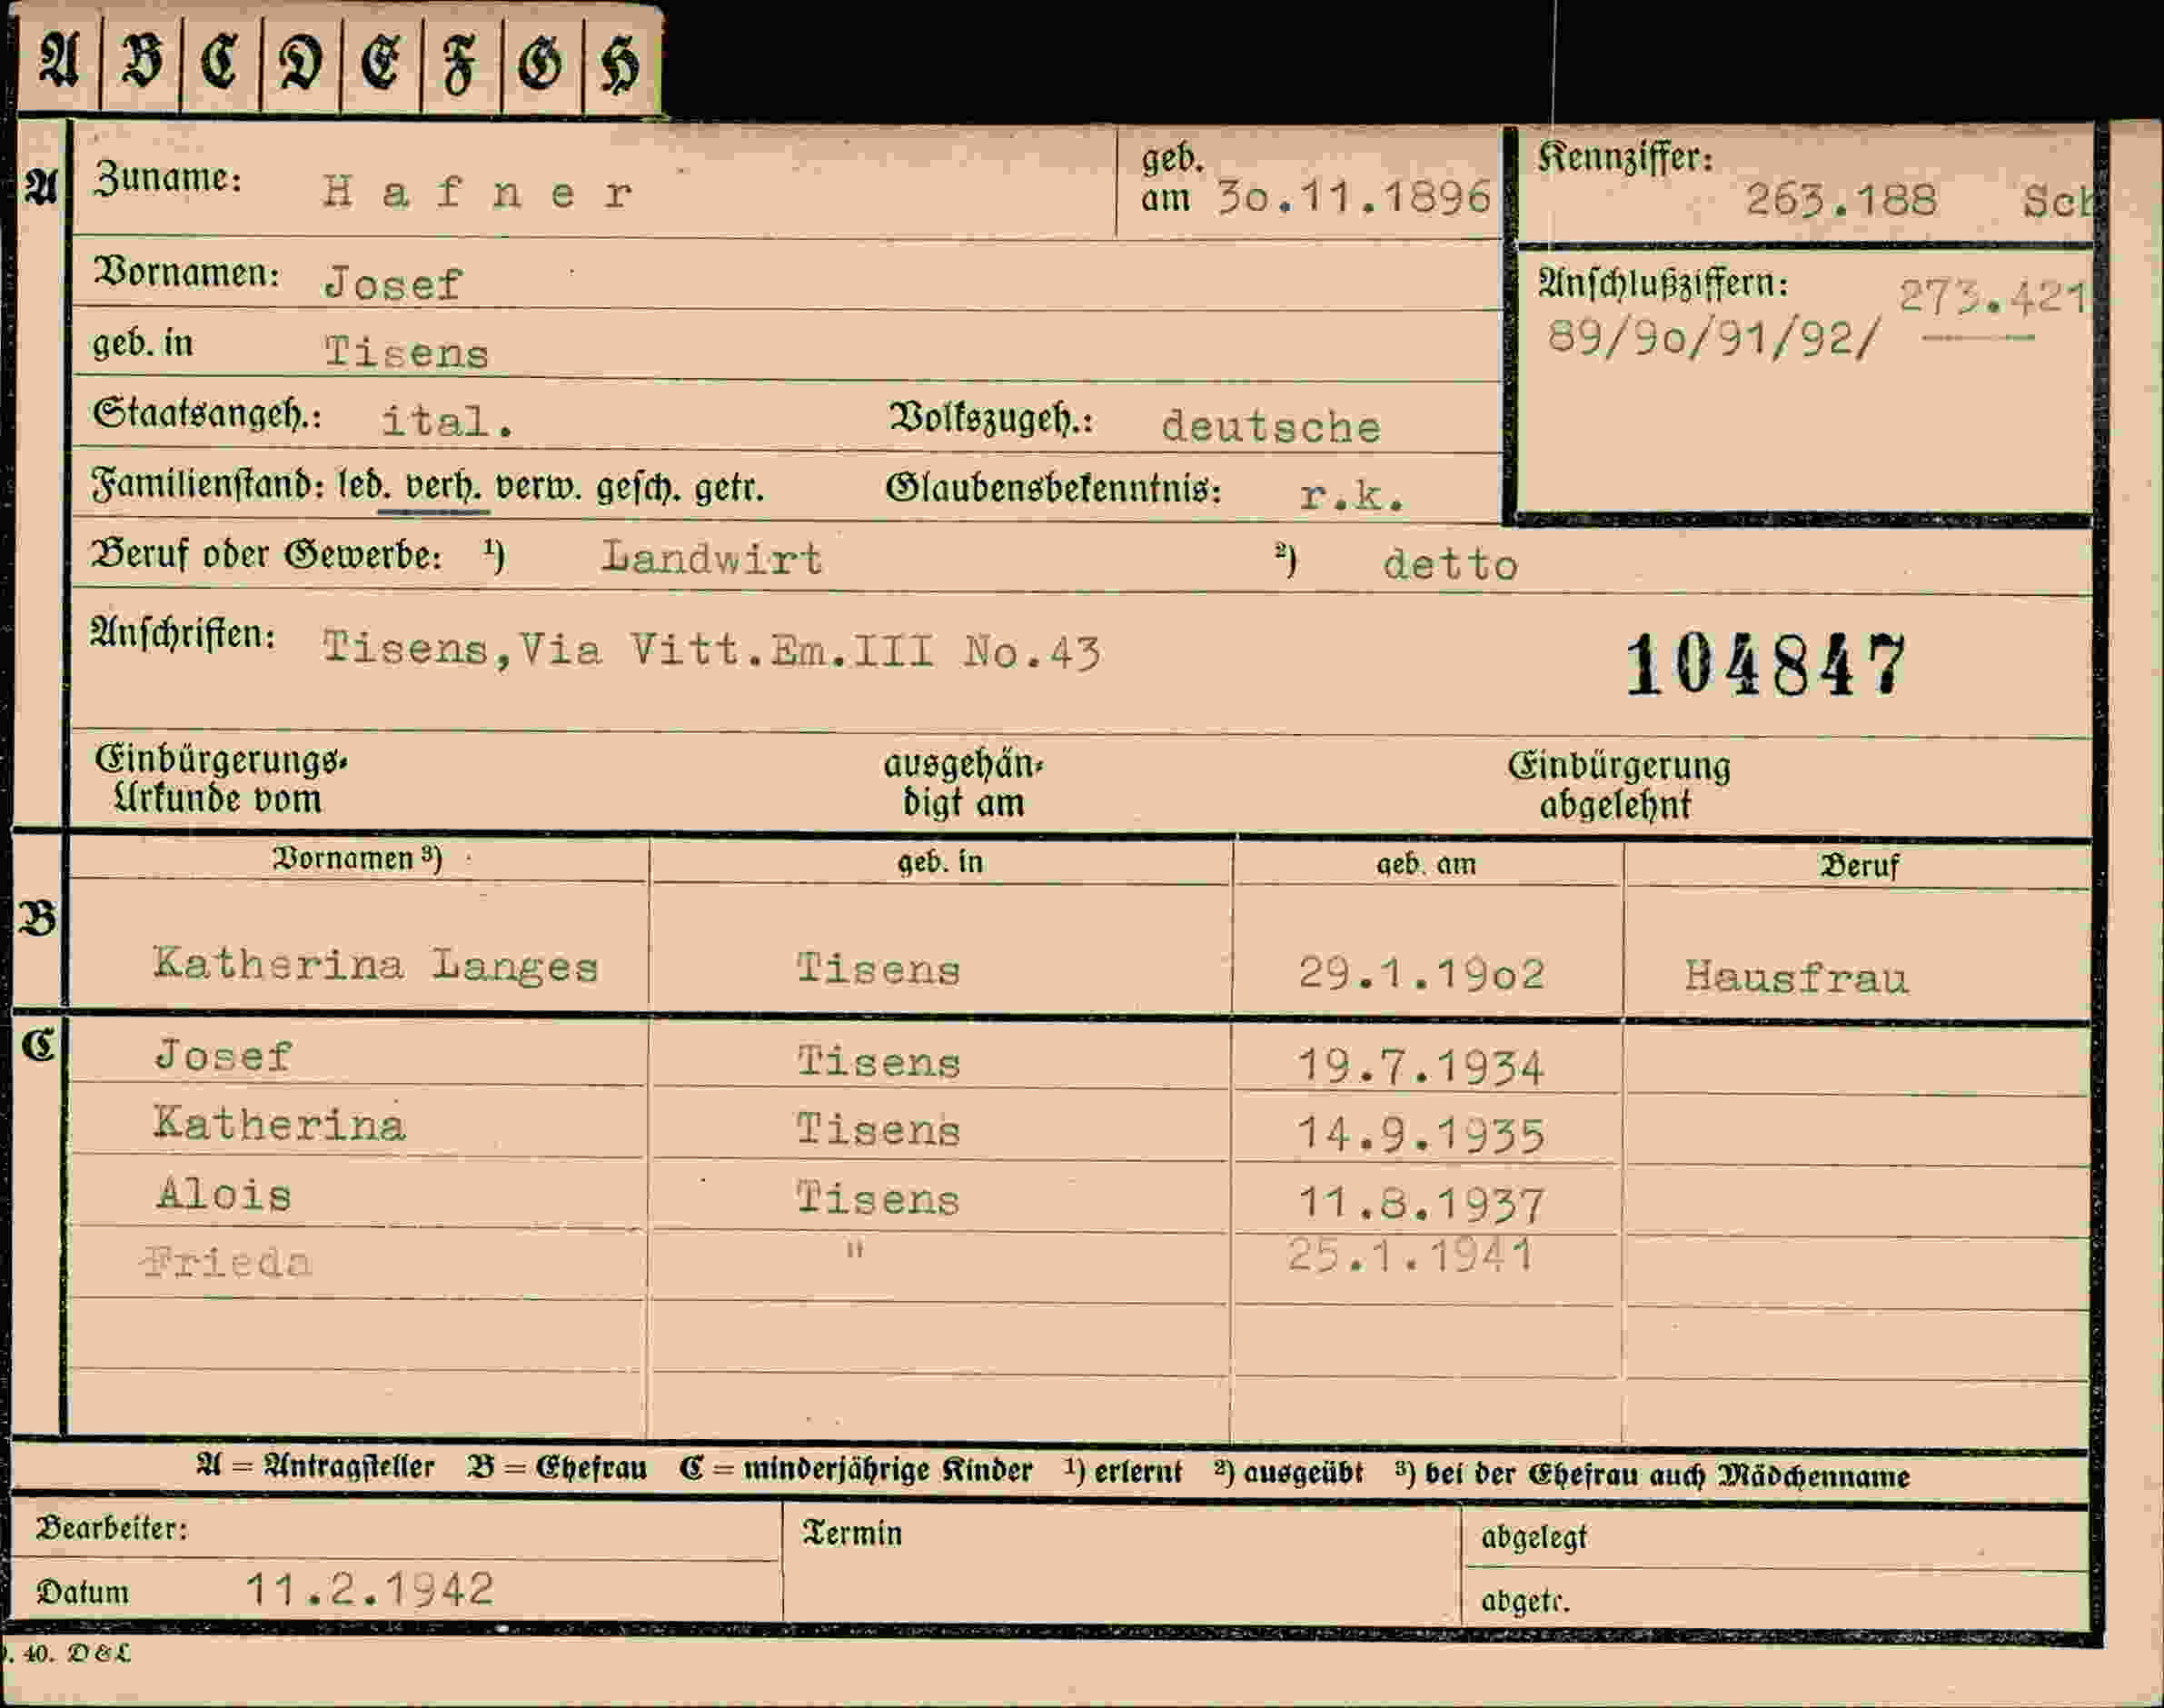 A B C D E F G H
A
Zuname: Hafner
geb. am 30.11.1896
Kennziffer: 263.188 Sch
Vornamen: Josef
Anschlußziffern: 273.421
89/90/91/92/
geb. in Tisens
Staatsangeh.: ital. Volkszugeh.: deutsche
Familienstand: led. verh. verw. gesch. getr. Glaubensbekenntnis: r.k.
Beruf oder Gewerbe: ¹) Landwirt ²) detto
Anschriften: Tisens,Via Vitt.Em.III No.43
104847
Einbürgerungs-Urkunde vom
ausgehändigt am
Einbürgerung abgelehnt
Vornamen ³) geb. in geb. am Beruf
B
Katherina Langes Tisens 29.1.1902 Hausfrau
C
Josef Tisens 19.7.1934
Katherina Tisens 14.9.1935
Alois Tisens 11.8.1937
Frieda " 25.1.1941
A = Antragsteller B = Ehefrau C = minderjährige Kinder ¹) erlernt ²) ausgeübt ³) bei der Ehefrau auch Mädchenname
Bearbeiter: Termin abgelegt
Datum 11.2.1942 abgetr.
. 40. D & L